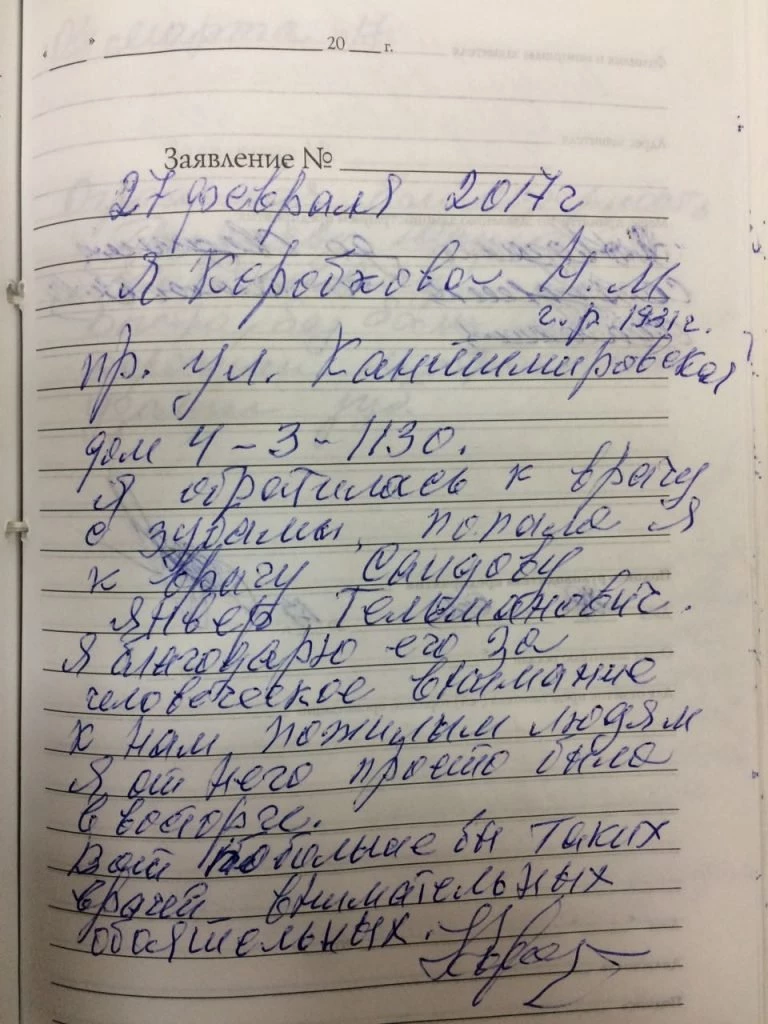 « » 20 г.
Заявление №
27 февраля 2017 г
Я Коробкова Н. М
г. р. 1931 г.
пр. ул. Кантемировская
дом 4-3-1130.
Я обратилась к врачу
с зубамы, попала я
к врачу Саидову
Янвер Тельманович.
Я благодарю его за
человеческое внимание
к нам пожилым людям
Я от него просто была
в восторге.
Вот побольше бы таких
врачей внимательных
обаятельных.